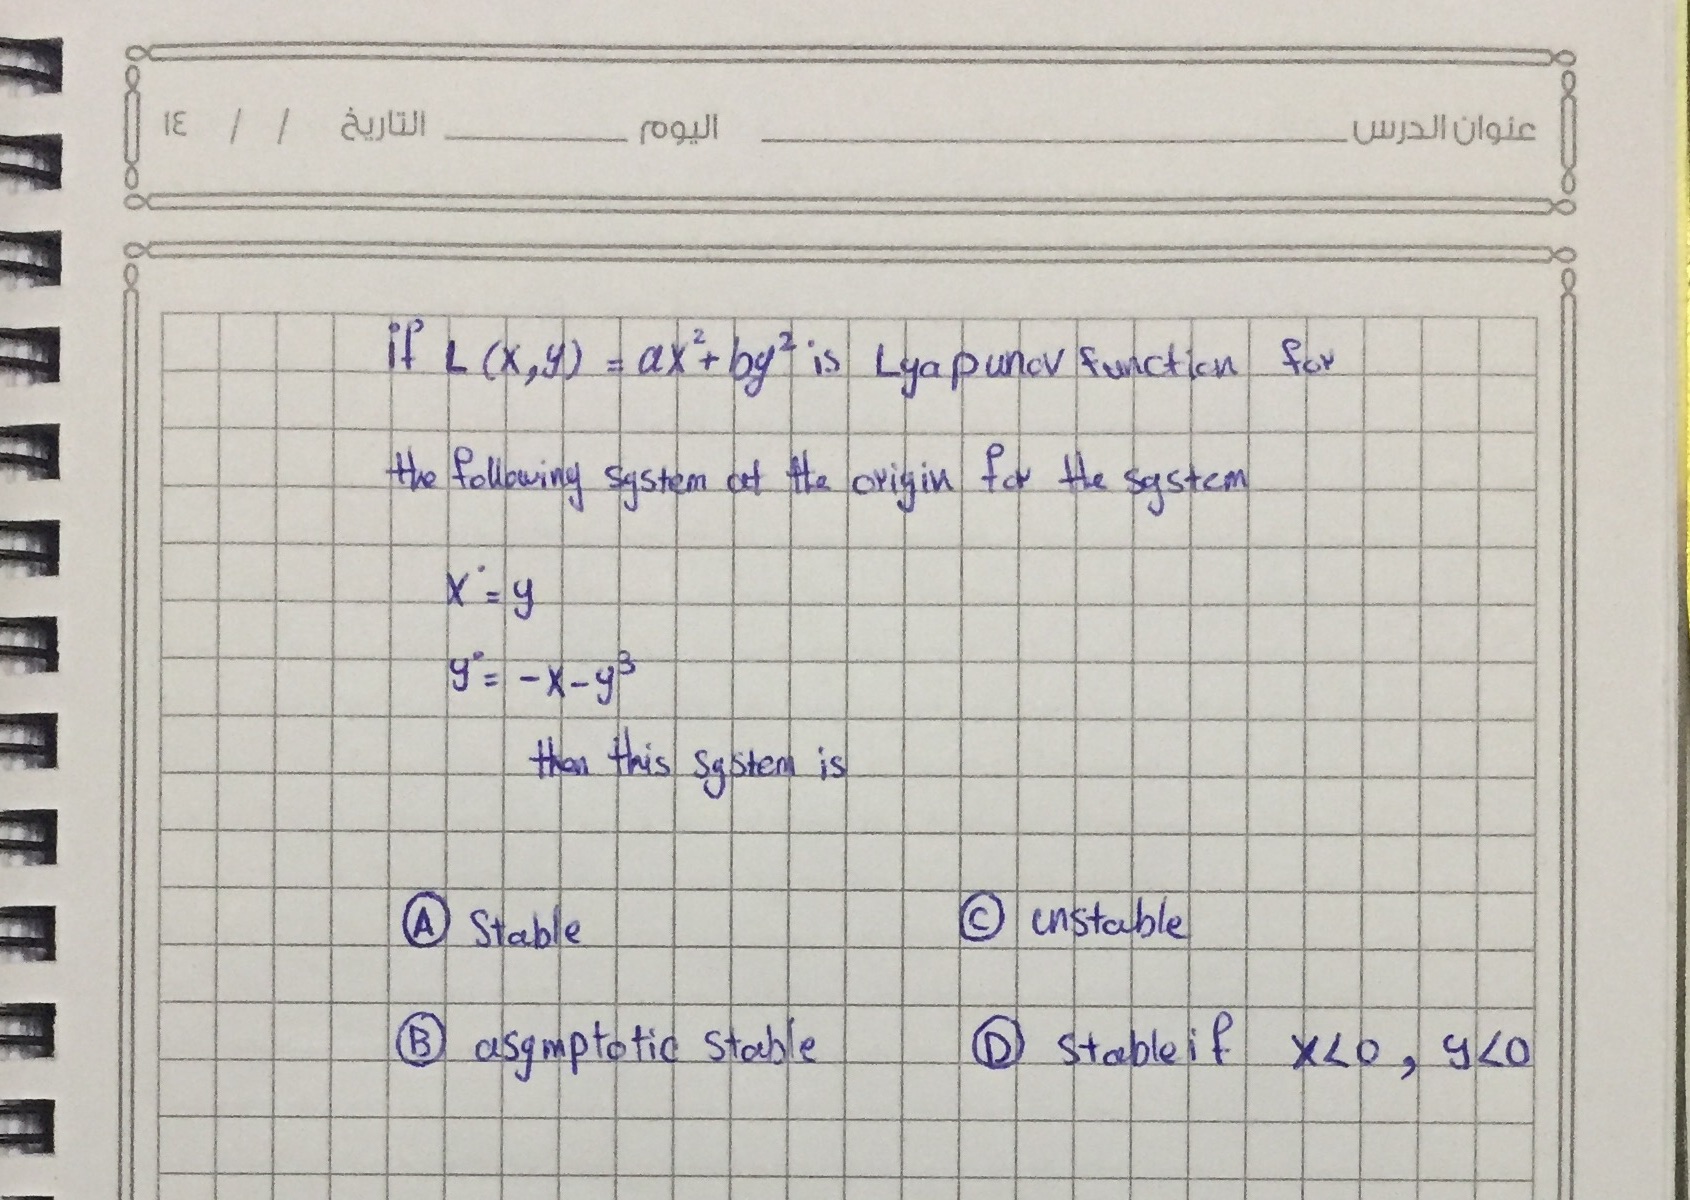 عنوان الدرس اليوم التاريخ / / ١٤
if L(x,y) = ax²+by² is Lyapunov function for
the following system at the origin for the system
x˙= y
y˙= -x-y³
then this system is
Ⓐ Stable Ⓒ unstable
Ⓑ asymptotic stable Ⓓ stable if x<0, y<0